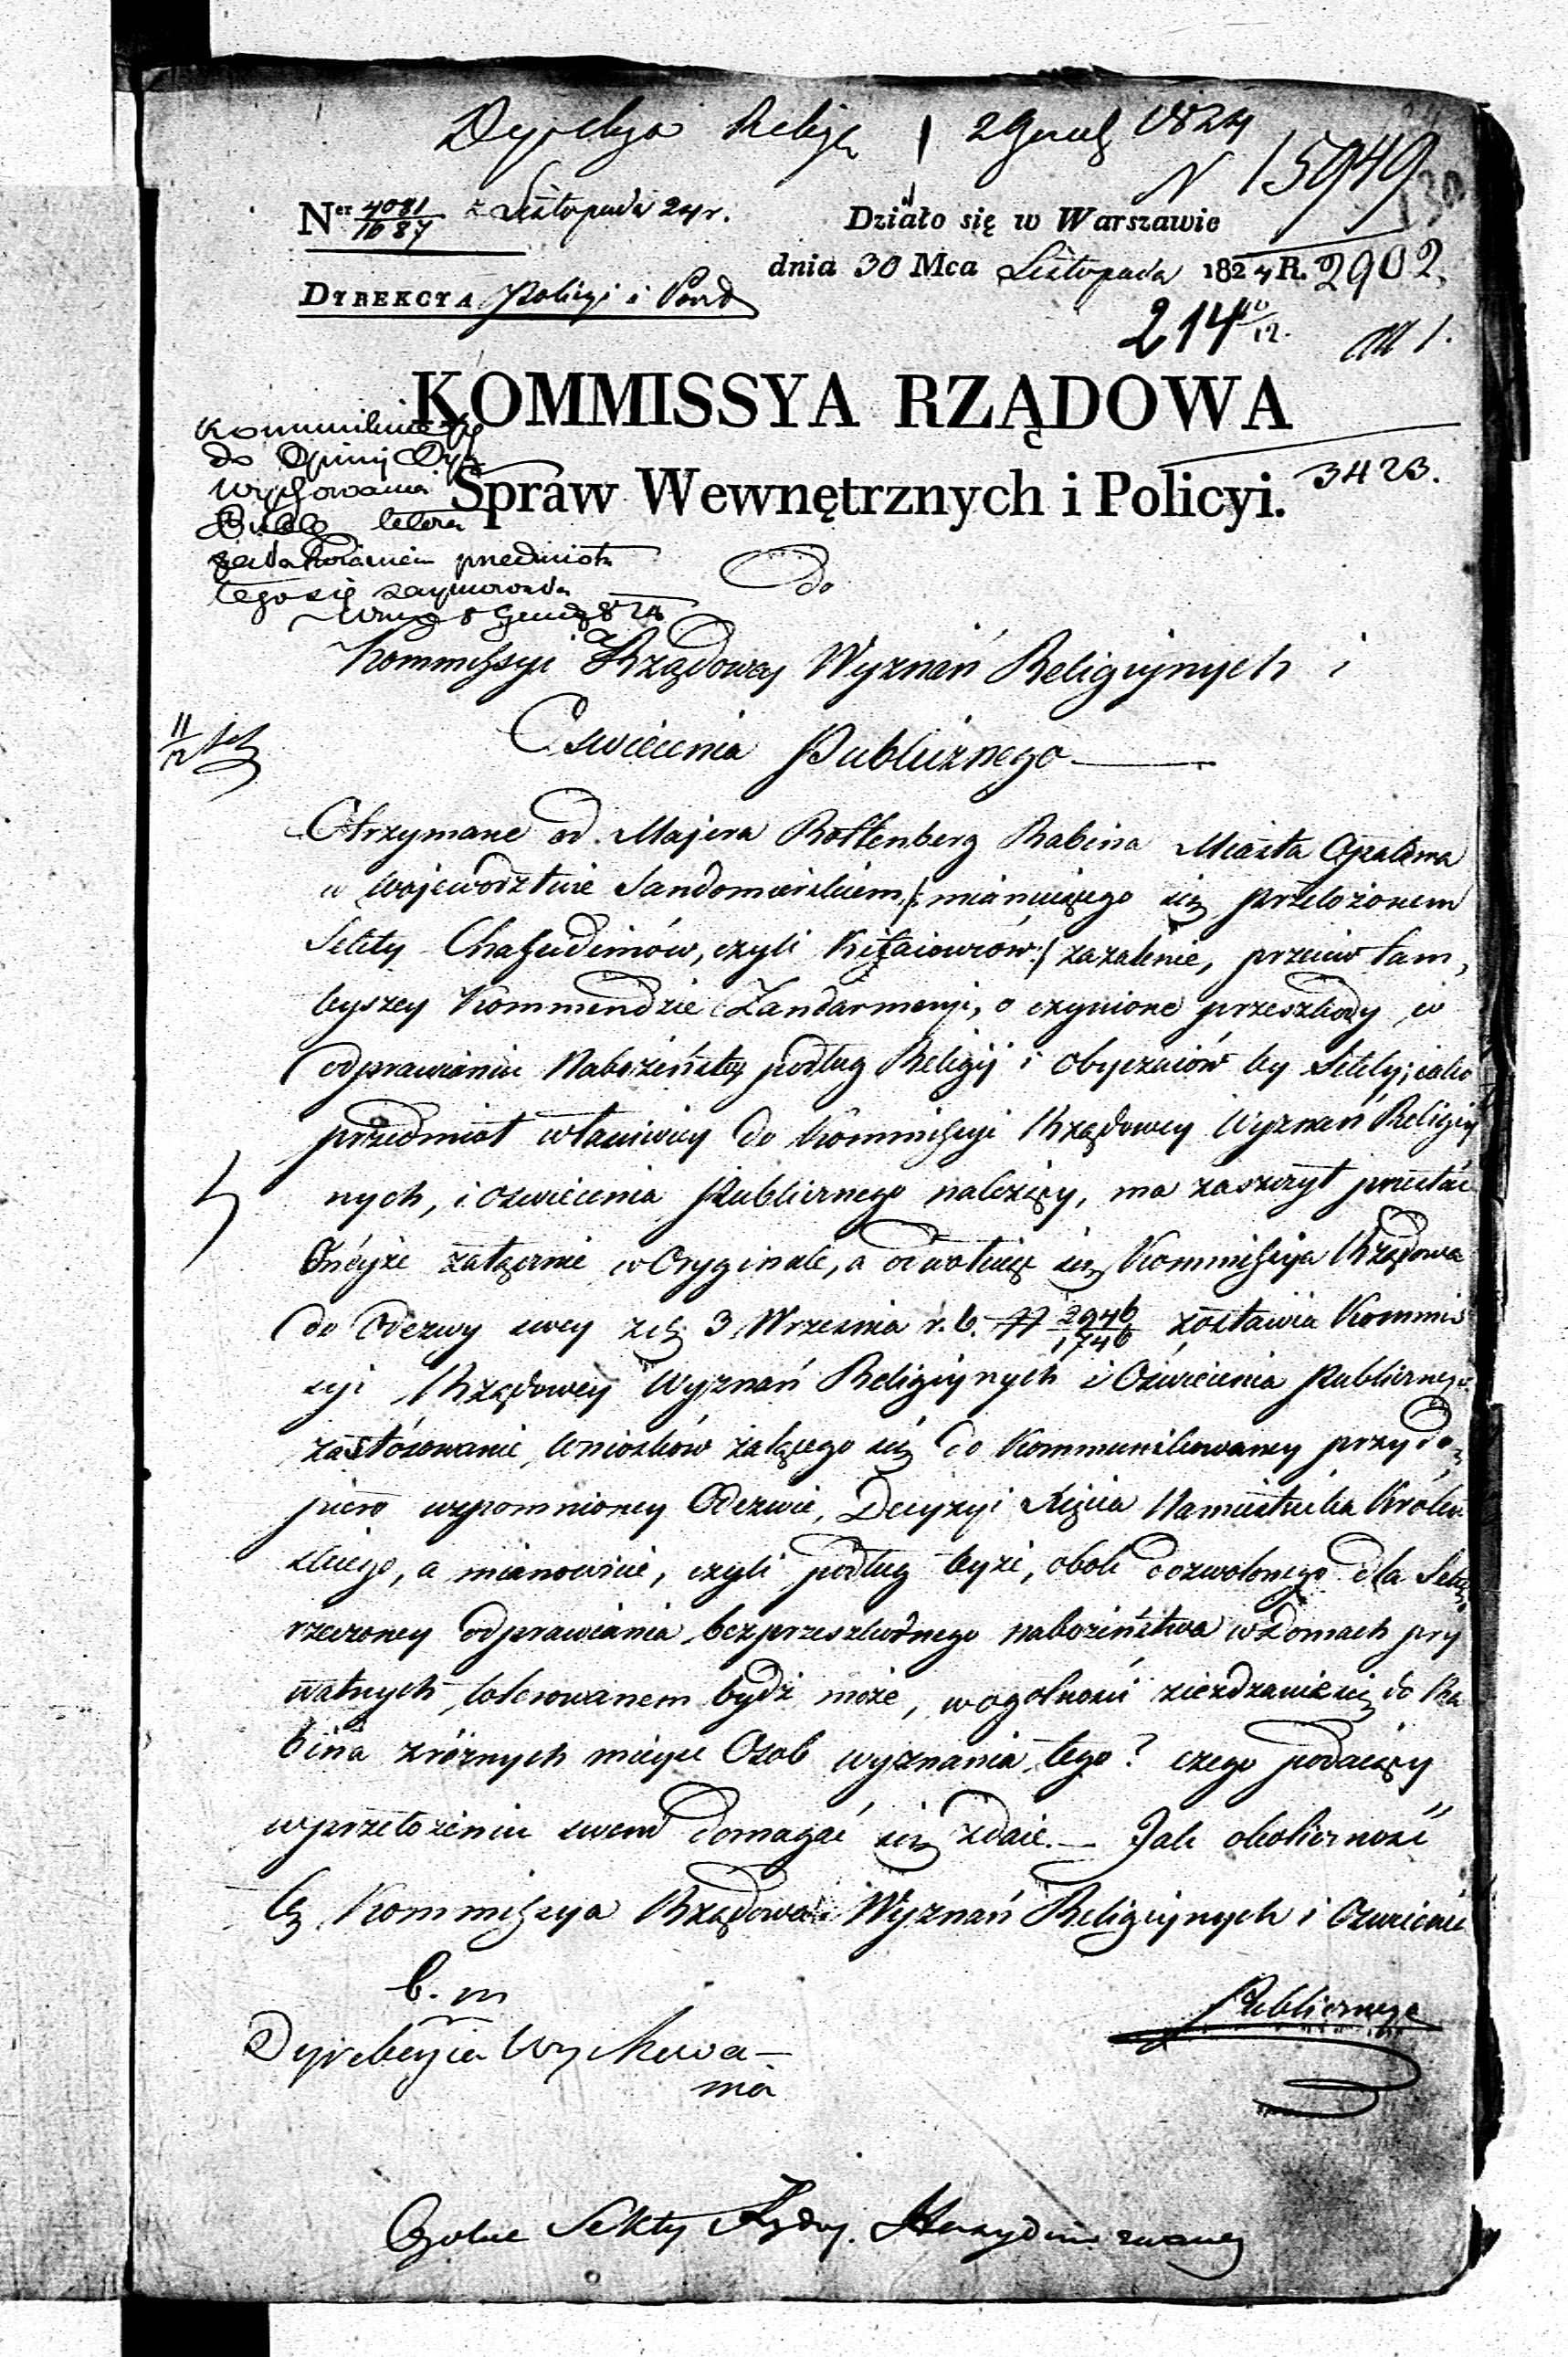 Dyrekcya Religij 29 grud 1824
N 15949
Ner 4081/1687 z Listopada 24 r.
Działo się w Warszawie
dnia 30 Mca Listopada 1824 R. 2902.
DYREKCYA Policyi i
214 10/12.
KOMMISSYA RZĄDOWA
Spraw Wewnętrznych i Policyi.
3423.
do
do Opinij Dyr.
Wychowania
przedmiotu
tego się
Kommissyi Rządowey Wyznań Religiynych i
Oswiecenia Publicznego
11/12
Otrzymane od Majera Rottenberg Rabina Miasta Opatowa
w Województwie Sandomierskiem /: mianuiącego się przełożonem
Sekty Chassidimów, czyli Kitaiowców :/ zażalenie, przeciw tam,
teyszey Kommendzie Żandarmeryi, o czynione przeszkody w
odprawianiu Nabożeństw podług Religij i obyczaiów tey Sekty; iako
przedmiot właściwiey do Kommissyi Rządowey Wyznań Religiy
nych, i oswiecenia Publicznego należący, ma zaszczyt przesłać
Oneyże załącznie w Oryginale, a odwołuiąc się Kommissyia Rządowa
do Odezwy swey z d. 3 Września r. b. N 2946/1746 zostawia Kommis
syi Rządowey Wyznań Religiynych i Oświecenia Publicznego
zastósowanie wniosków żalącego się do Kommunikowaney przy do,
piero wspomnioney Odezwie, Decyzyi Xięcia Namiestnika Królew
skiego, a mianowicie, czyli podług teyże, obok dozwolonego dla Sekty
rzeczoney odprawiania bezprzeszkodnego nabożeństwa w domach pry
watnych, tolerowanem bydź może, w ogolności zieżdzanie się do Ra
bina z różnych mieysc Osob wyznania tego? czego podaiący
w przełożeniu swem domagać się zdaie. — Jak okoliczność
tę Kommissya Rządowa Wyznań Religiynych i Oswiecenia
b. m
Publicznego
Dyrekcyia Wychowa-
nia
Ogolne Sekty Żydow. Hussydim zwaney